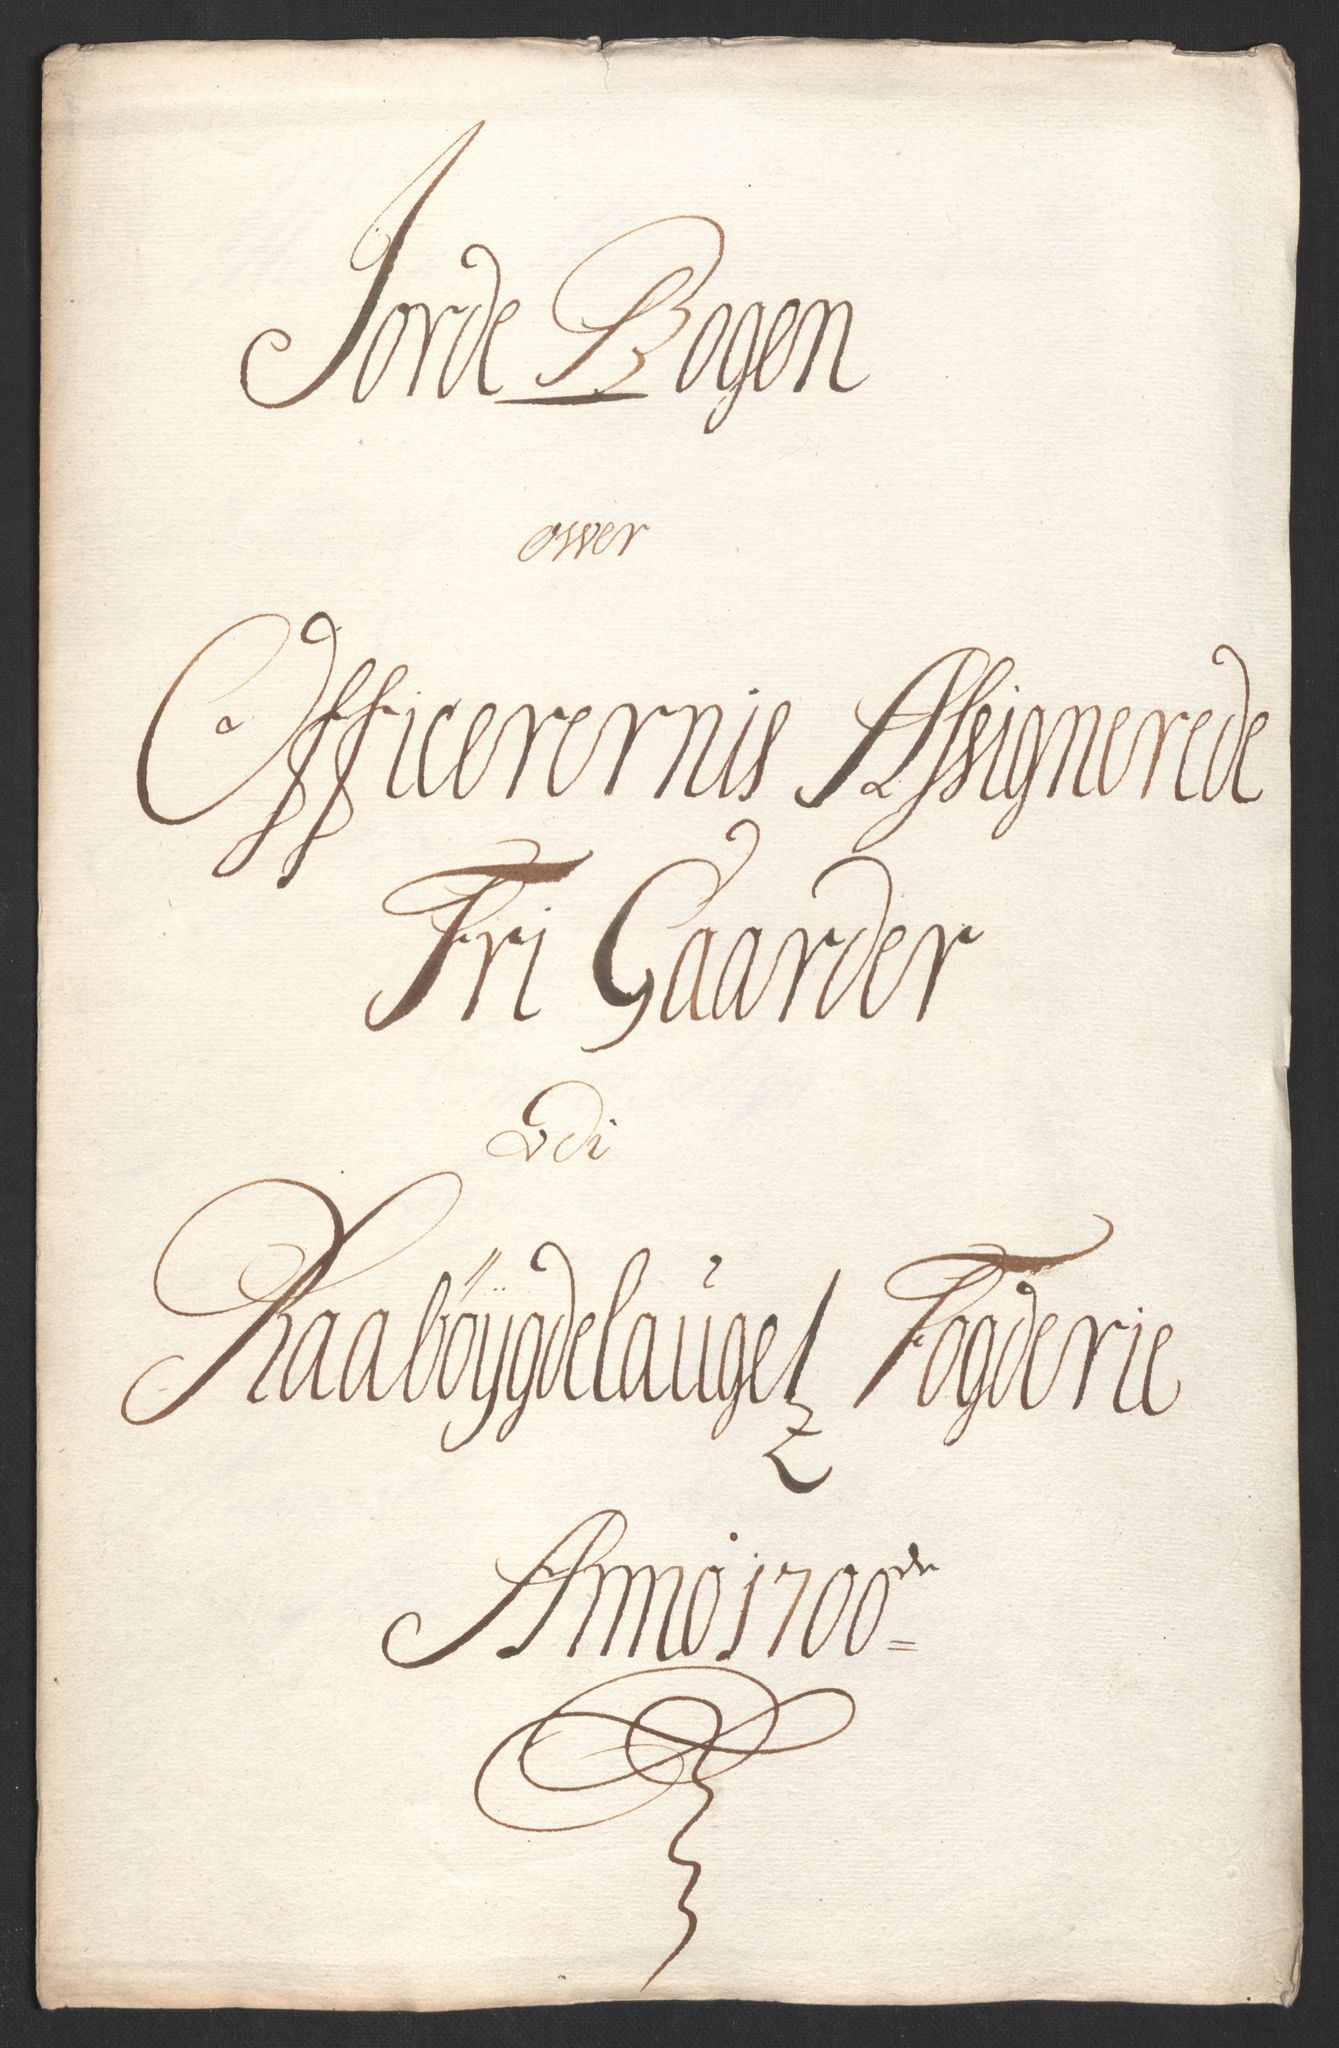 Jorde Bogen
ower
Officerernis Assignerede
Fri Gaarder
Udi
Raaböÿgdelaugetz Fogderie
Anno 1700de